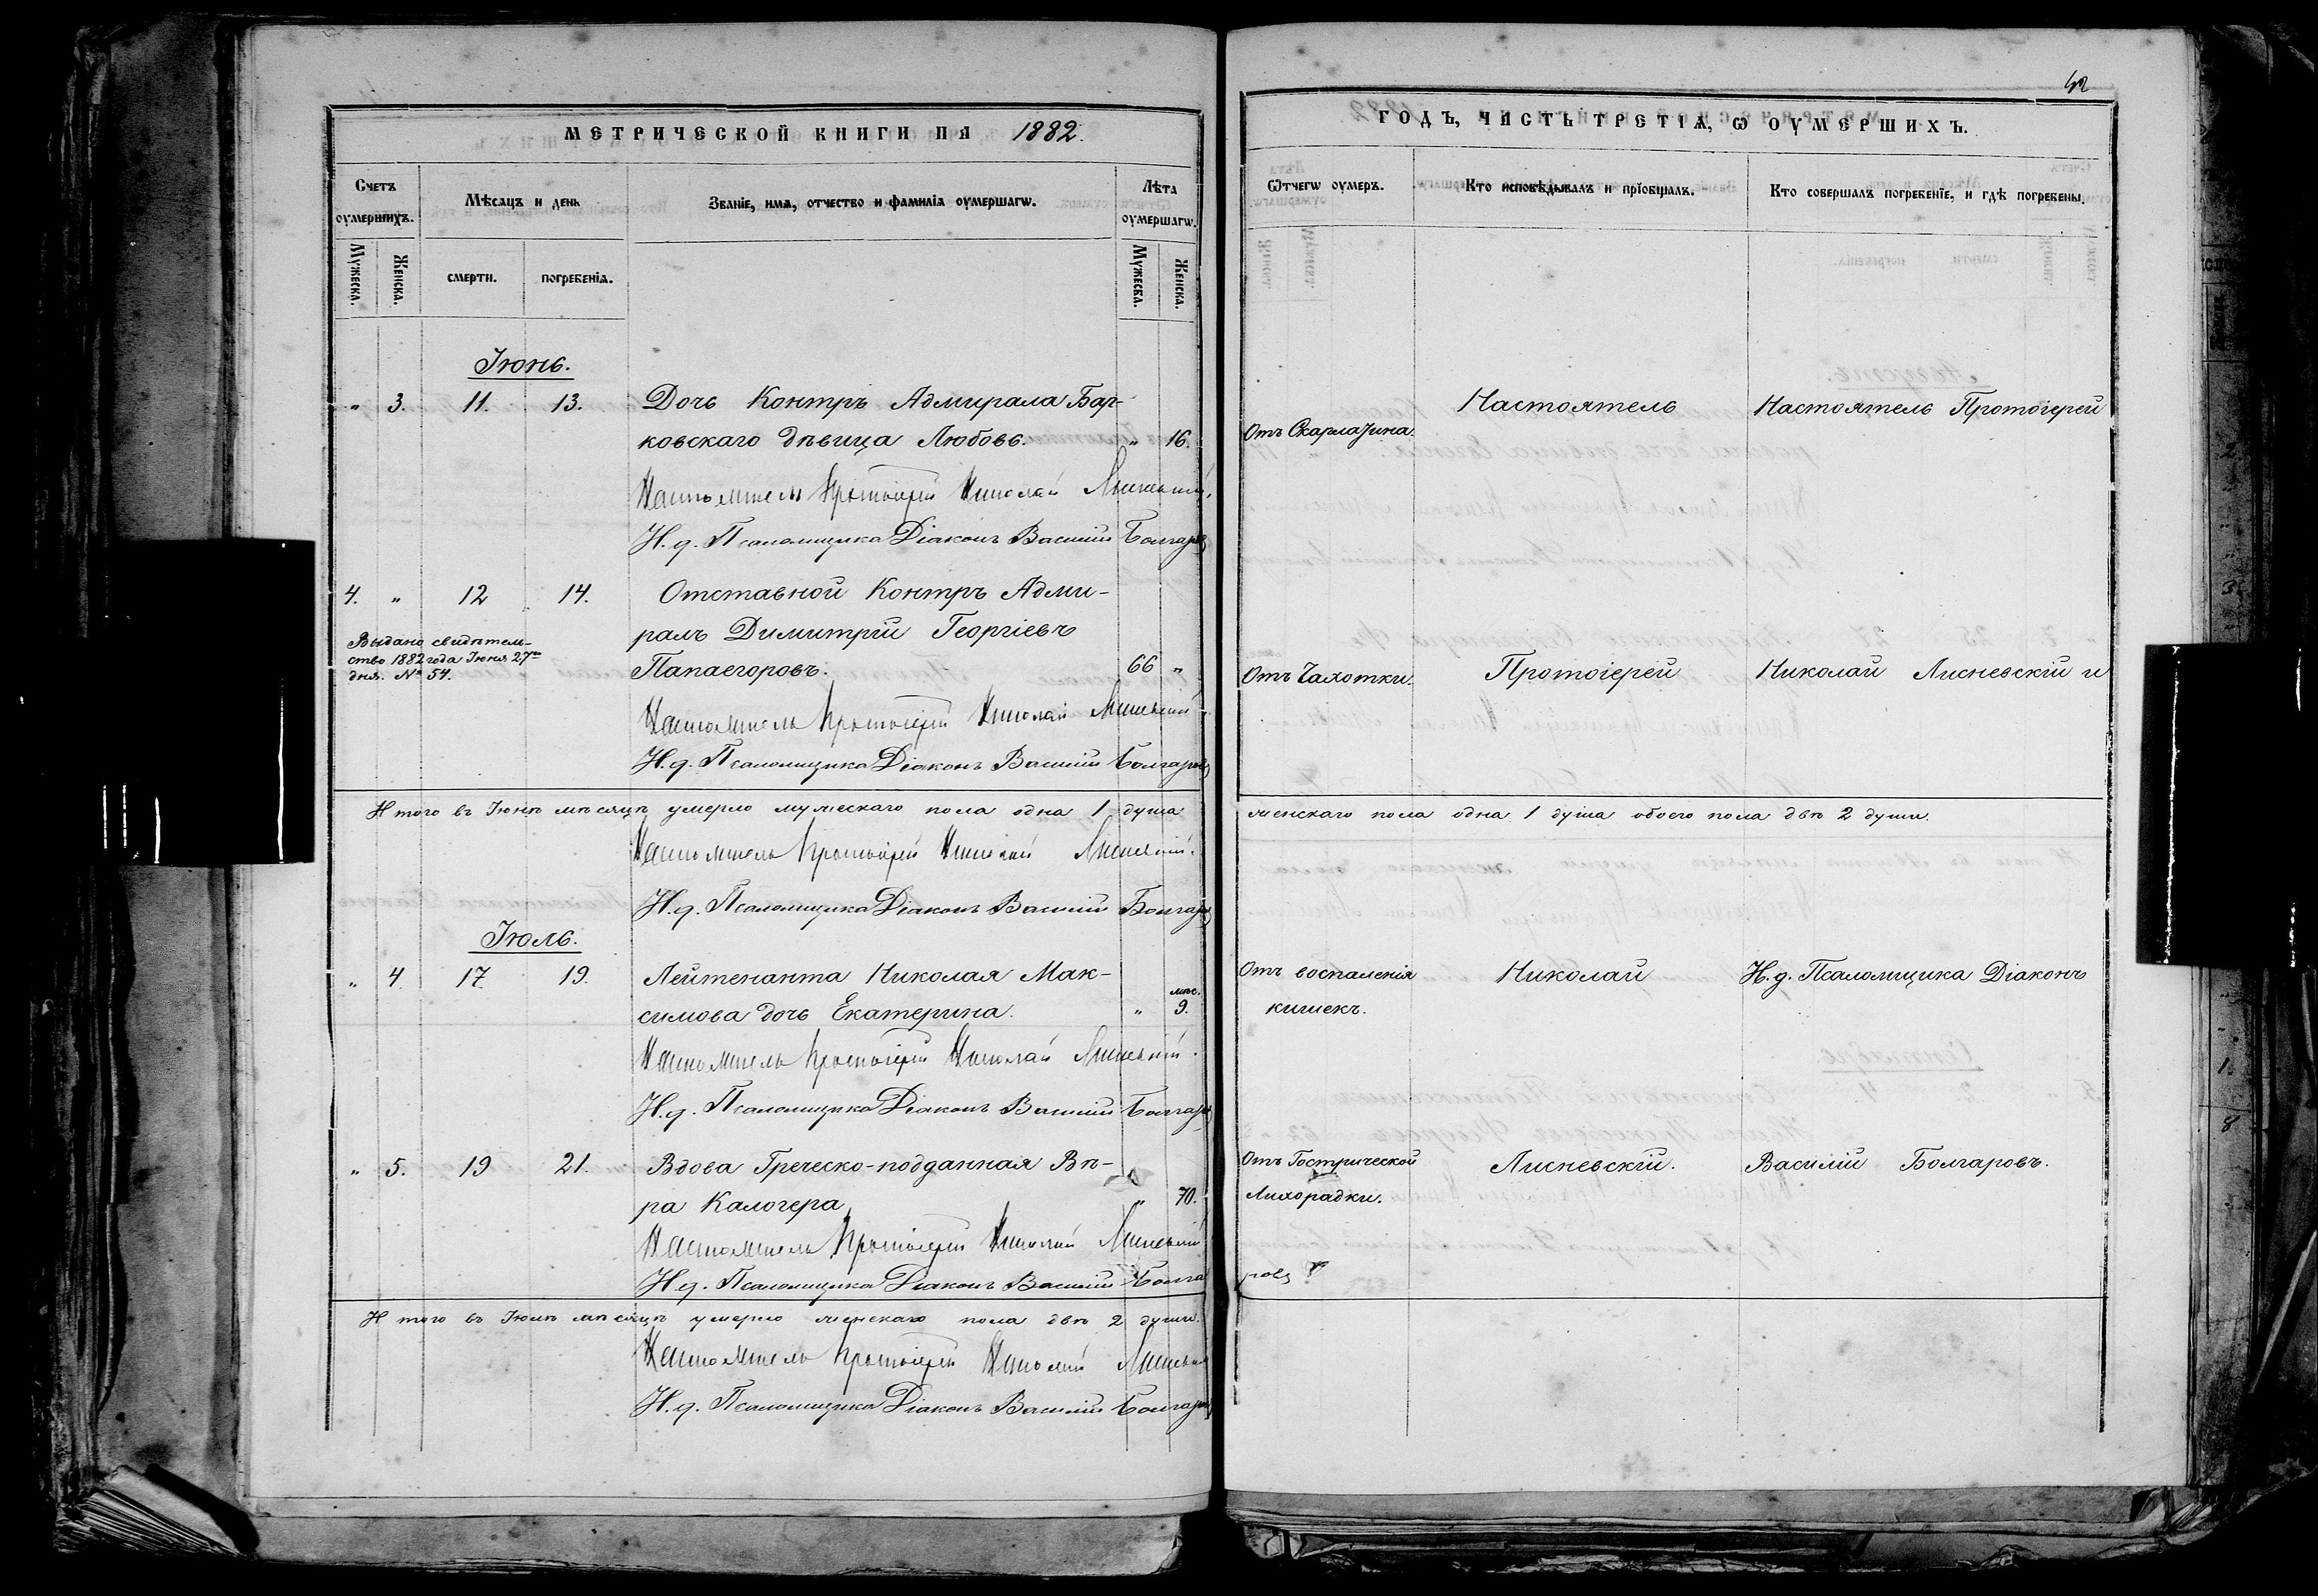 МЕТРИЧЕСКОЙ КНИГИ НА 1882.
Счетъ оумершихъ.
Мѣсяцъ и день
Званіе, имя, отчество и фамилія оумершагѡ.
Лѣта оумершагѡ.
Мужеска.
Женска.
смерти.
погребенія.
Мужеска.
Женска.
Іюнь.
" 3. 11. 13. Дочь Контръ Адмирала Бар-
ковскаго дѣвица Любовь. " 16.
Настоятель Протоіерей Николай Лисневскій.
Н. д. Псаломщика Діаконъ Василій Болгаровъ
4. " 12 14. Отставной Контръ Адми-
ралъ Димитрій Георгіевъ
Папаегоровъ. 66 "
Выдано свидѣтель-
ство 1882 года Іюня 27го
дня. № 54.
Настоятель Протоіерей Николай Лисневскій
Н. д. Псаломщика Діаконъ Василій Болгаровъ
Итого въ Іюнѣ мѣсяцѣ умерло мужескаго пола одна 1 душа
Настоятель Протоіерей Николай Лисневскій.
Н. д. Псаломщика Діаконъ Василій Болгаровъ
Іюль.
" 4 17 19. Лейтенанта Николая Мак-
симова дочь Екатерина. " мѣс. 9.
Настоятель Протоіерей Николай Лисневскій.
Н. д. Псаломщика Діаконъ Василій Болгаровъ
" 5. 19 21. Вдова Греческо-подданная Вѣ-
ра Калогера " 70.
Настоятель Протоіерей Николай Лисневскій
Н. д. Псаломщика Діаконъ Василій Болга
Итого въ Іюлѣ мѣсяцѣ умерло женскаго пола двѣ 2 души.
Настоятель Протоіерей Николай Лисневскій
Н. д. Псаломщика Діаконъ Василій Болгаровъ
42
ГОДЪ, ЧАСТЬ ТРЕТІѦ, Ѡ ОУМЕРШИХЪ.
Ѿчегѡ оумеръ.
Кто исповѣдывалъ и пріобщалъ.
Кто совершалъ погребеніе, и гдѣ погребены.
Отъ Скарлатина.
Настоятель
Настоятель Протоіерей
Отъ Чахотки.
Протоіерей
Николай Лисневскій и
женскаго пола одна 1 душа обоего пола двѣ 2 души.
Отъ воспаленія
кишекъ.
Николай
Н. д. Псаломщика Діаконъ
Отъ Гострической
Лихорадки.
Лисневскій.
Василій Болгаровъ.
ровъ